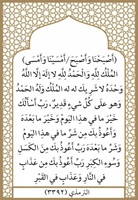 (أَصْبَحْنَا وَأَصْبَحَ/أَمْسَيْنَا وَأَمْسَى)
الْمُلْكُ لِلَّهِ وَالْحَمْدُ لِلَّهِ لَا إِلَهَ إِلَّا اللَّهُ
وَحْدَهُ لَا شَرِيكَ لَهُ لَهُ الْمُلْكُ وَلَهُ الْحَمْدُ
وَهُوَ عَلَى كُلِّ شَيْءٍ قَدِيرٌ، رَبِّ أَسْأَلُكَ
خَيْرَ مَا فِي هَذَا الْيَوْمِ وَخَيْرَ مَا بَعْدَهُ
وَأَعُوذُ بِكَ مِنْ شَرِّ مَا فِي هَذَا الْيَوْمِ
وَشَرِّ مَا بَعْدَهُ رَبِّ أَعُوذُ بِكَ مِنَ الْكَسَلِ
وَسُوءِ الْكِبَرِ رَبِّ أَعُوذُ بِكَ مِنْ عَذَابٍ
فِي النَّارِ وَعَذَابٍ فِي الْقَبْرِ
الترمذي (٣٣٩٢)